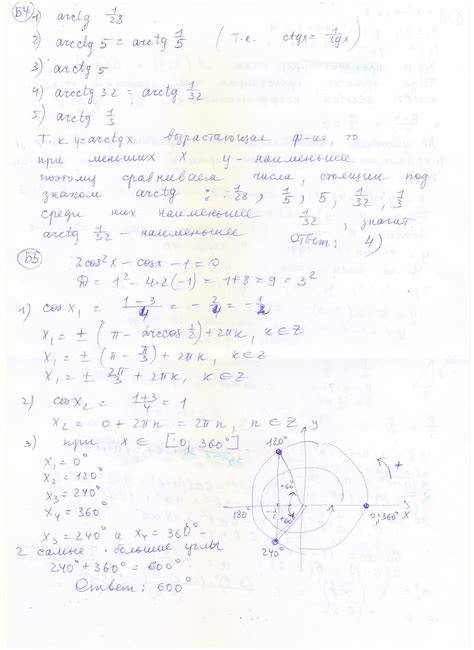 Б4 1) arctg 1/28
2) arcctg 5 = arctg 1/5 ( т.к. ctgx = 1/tgx )
3) arcctg 5
4) arcctg 32 = arctg 1/32
5) arcctg 1/3
т.к y=arctgx возрастающая ф-ия, то
при меньших x y - наименьшее
поэтому сравниваем числа, стоящии под
знаком arctg : 1/28, 1/5, 5, 1/32, 1/3
среди них наименьшее 1/32, значит
arctg 1/32 - наименьшее Ответ: 4)
Б5 2cos²x - cosx - 1 = 0
D = 1² - 4·2(-1) = 1+8 = 9 = 3²
1) cos x₁ = (1-3)/4 = -2/4 = -1/2
x₁ = ± (π - arccos 1/2) + 2πк, к∈Z
x₁ = ± (π - π/3) + 2πк, к∈Z
x₁ = ± 2π/3 + 2πк, к∈Z
2) cosx₂ = (1+3)/4 = 1
x₂ = 0 + 2πn = 2πn, n∈Z
3) при x ∈ [0; 360°]
x₁ = 0°
x₂ = 120°
x₃ = 240°
x₄ = 360°
x₃ = 240° и x₄ = 360° -
2 самые большие углы
240° + 360° = 600°
Ответ: 600°
y
120°
+
-60°
180°
-1/2
+60°
0;360°
x
240°